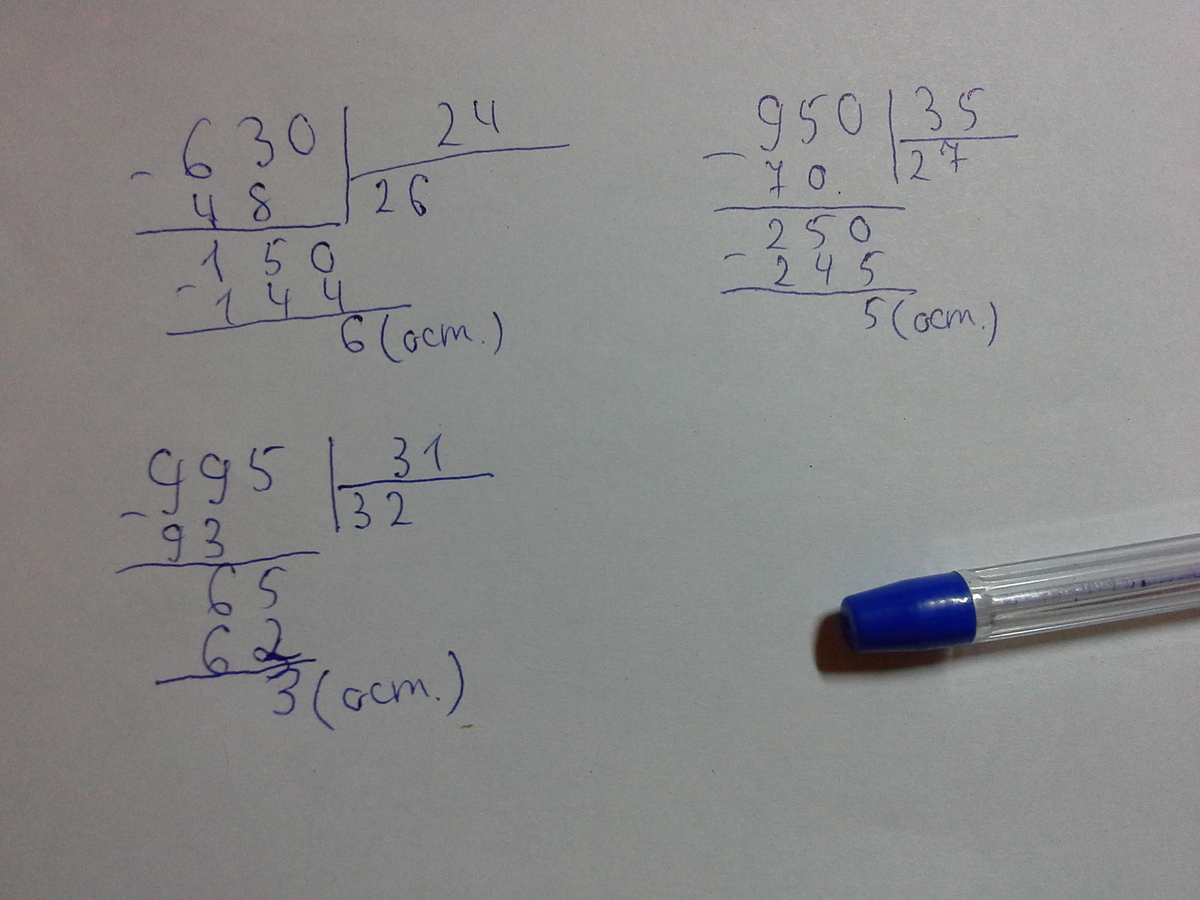 - 630 | 24
48 | 26
150
- 144
6 (ост.)
- 950 | 35
70 | 27
250
- 245
5 (ост.)
- 995 | 31
93 | 32
65
62
3 (ост.)